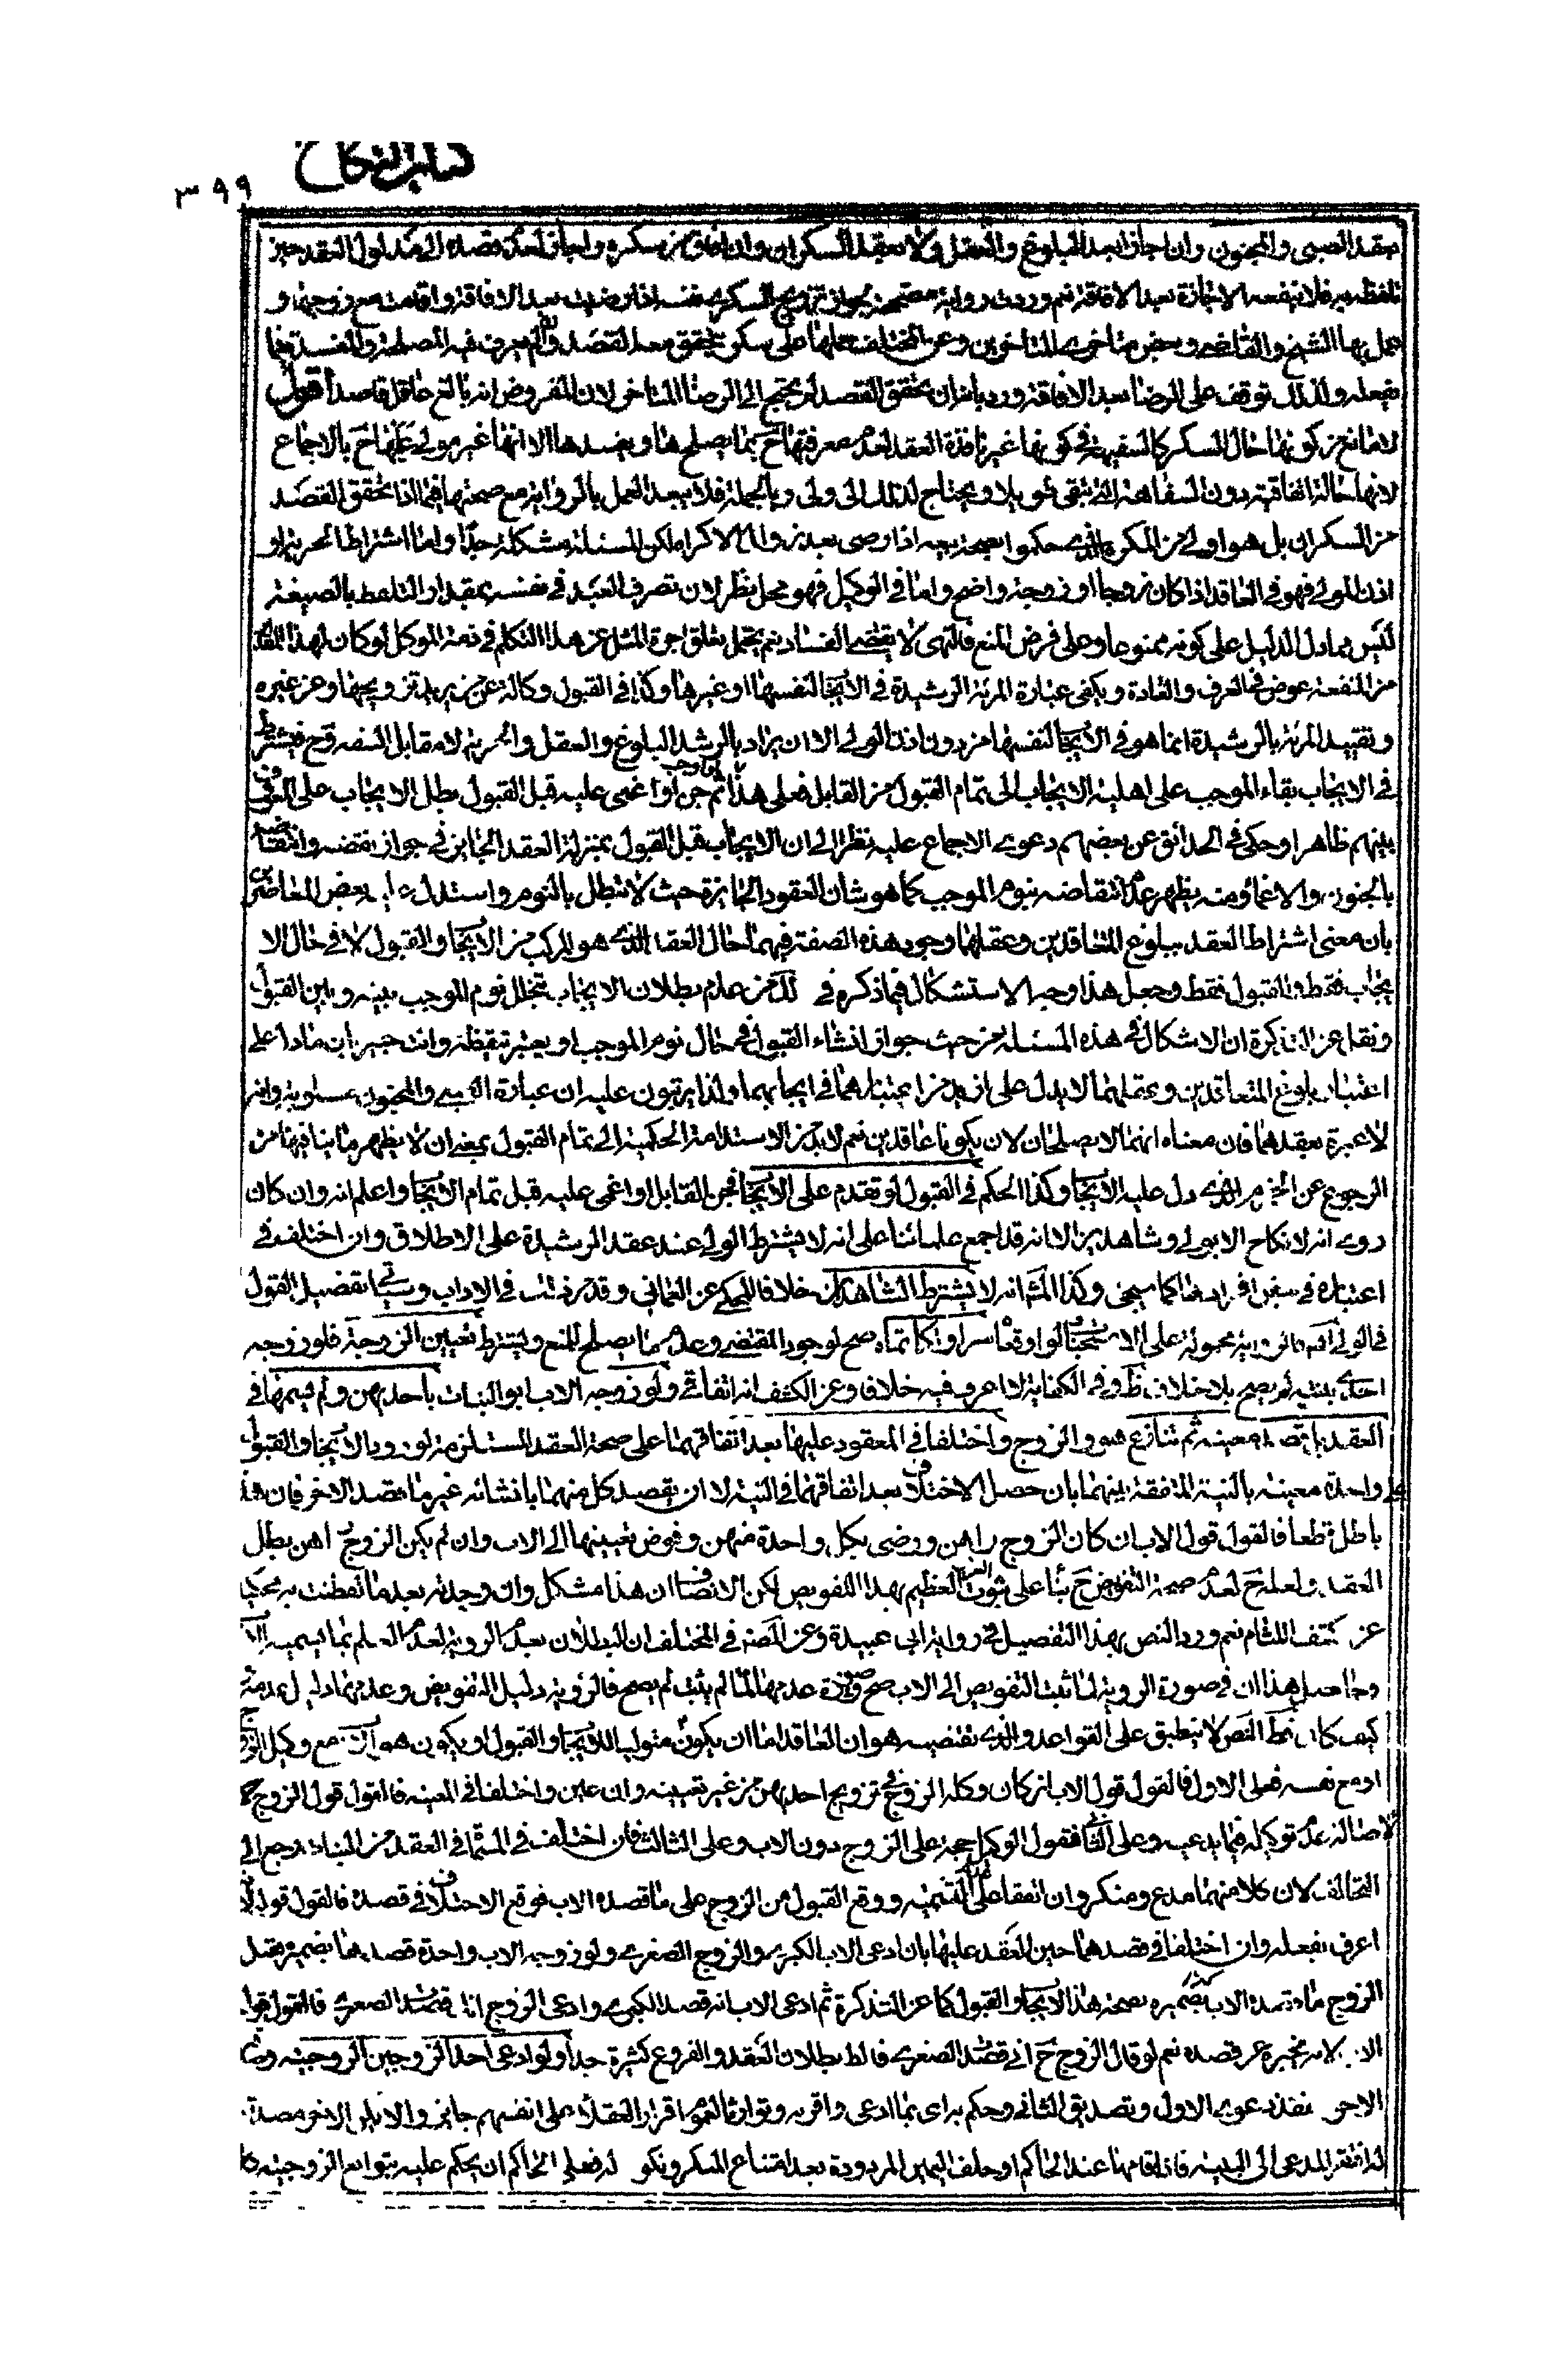 كتاب النكاح
٣٩٩
بعقد الصبى والمجنون وان اجازا بعد البلوغ والعقل ولا بعقد السكران وان افاق من سكره واجاز لعدم قصده الى مدلول العقد حين
تلفظه به فلا ينفعه الاجازة بعد الافاقة نعم وردت رواية صحيحة بجواز تزويج السكرى نفسها اذا رضيت بعد الافاقة واقامت مع زوجها و
عمل بها الشيخ والقاضى وبعض متاخرى المتاخرين وعن المختلف حملها على سكر يتحقق معه القصد وان لم يعرف فيه المصلحة والمفسدة فيما
يفعله ولذلك توقف على الرضا بعد الافاقة ورد بانه ان يتحقق القصد لم يحتج الى الرضا المتاخر لان المفروض انه بالغ عاقل قاصد اقول
لا مانع من كونها حال السكر كالسفيهة فى كونها غير نافذة العقد لعدم معرفتها ح بما يصلحها ويفسدها الا انها غير مولى عليها ح بالاجماع
لانها حالة اتفاقية دون السفاهة التى تبقى طويلا ويحتاج لذلك الى ولى وبالجملة فلا يبعد العمل بالرواية مع صحتها فيما اذا يتحقق القصد
من السكران بل هو اولى من المكره الذى حكموا بصحة بيعه اذا رضى بعد زوال الاكراه لكن المسئلة مشكلة جدا واما اشتراط الحرية او
اذن المولى فهو فى العاقد اذا كان زوجا او زوجة واضح واما فى الوكيل فهو محل نظر لان تصرف العبد فى نفسه بعقد او التلفظ بالصيغة
ليس مما دل الدليل على كونه ممنوعا وعلى فرض المنع فالنهى لا يقتضى الفساد نعم يحتمل تعلق اجرة المثل عن هذا التكلم فى ذمة الموكل لو كان لهذا القدر
من المنفعة عوض فى العرف والعادة ويكفى عبارة المرئة الرشيدة فى الايجاب لنفسها او غيرها وكذا فى القبول وكالة عن من يريد تزويجها وعن غيره
وتقييد المرئة بالرشيدة انما هو فى الايجاب لنفسها من دون اذن الولى الا ان يراد بالرشد البلوغ والعقل والحرية لا مقابل السفه وح فيشترط
فى الايجاب بقاء الموجب على اهلية الايجاب الى تمام القبول من القابل فعلى هذا لو اوجب ثم جن او اغمى عليه قبل القبول بطل الايجاب على المعروف
بينهم ظاهرا وحكى فى الحدائق عن بعضهم دعوى الاجماع عليه نظرا الى ان الايجاب قبل القبول بمنزلة العقد الجائز فى جواز نقضه وانتقاضه
بالجنون والاغماء ومنه يظهر عدم انتقاضه بنوم الموجب كما هو شان العقود الجائزة حيث لا تبطل بالنوم واستدل عليه بعض المعاصرين
بان معنى اشتراط العقد ببلوغ المتعاقدين وعقلهما وجود هذه الصفة فيهما حال العقد الذى هو المركب من الايجاب والقبول لا فى حال الا
يجاب فقط والقبول فقط وجعل هذا وجه الاستشكال فيما ذكره فى لك من عدم بطلان الايجاب بتخلل نوم الموجب بينه وبين القبول
ونقل عن التذكرة ان الاشكال فى هذه المسئلة من حيث جواز انشاء القبول فى حال نوم الموجب او يعتبر تيقظه وانت خبير بان ما دل على
اعتبار بلوغ المتعاقدين وعقلهما لا يدل على ازيد من اعتبارهما فى ايجابهما ولذا يرتبون عليه ان عبارة الصبى والمجنون مسلوبة وانه
لا عبرة بعقدهما فان معناه انهما لا يصلحان لان يكونا عاقدين نعم لا بد من الاستدامة الحكمية الى تمام القبول بمعنى ان لا يظهر ما ينافيها من
الرجوع عن الجزم الذى دل عليه الايجاب وكذا الحكم فى القبول لو تقدم على الايجاب فجن القابل او اغمى عليه قبل تمام الايجاب واعلم انه وان كان
روى انه لا نكاح الا بولى وشاهدين الا انه قد اجمع علمائنا على انه لا يشترط الولى عند عقد الرشيدة على الاطلاق وان اختلف فى
اعتباره فى بعض افرادها كما سيجئ وكذا المشهور انه لا يشترط الشاهدان خلافا للمحكى عن العمانى وقد مر فى الاداب وسياتى تفصيل القول
فى الولى فالرواية محمولة على الاستحباب ولو اوقعاه سرا وتكاتماه صح لوجود المقتضى وعدم ما يصلح للمنع ويشترط تعيين الزوجة فلو زوجه
احدى بنتيه لم يصح بلا خلاف ظ وفى الكفاية لا اعرف فيه خلافا وعن الكشف انه اتفاقى ولو زوجه الاب ابو البنات باحديهن ولم يسمها فى
العقد بل قصدها معينة ثم تنازع هو والزوج واختلفا فى المعقود عليها بعد اتفاقهما على صحة العقد المستلزمة لورود الايجاب والقبول
على واحدة معينة بالنية المتفقة بينهما بان حصل الاختلاف بعد اتفاقهما فى النية لا ان يقصد كل منهما بانشائه غير ما قصد الاخر فان هذا
باطل قطعا فالقول قول الاب ان كان الزوج راهن ورضى بكل واحدة منهن وفوض تعيينها الى الاب وان لم يكن الزوج راهن بطل
العقد ولعله ح لعدم صحة التفويض ح بناء على ثبوت الغرر العظيم بهذا التفويض لكن الانصاف ان هذا مشكل وان وجدته بعد ما تفطنت به محكيا
عن كشف اللثام نعم ورد النص بهذا التفصيل فى رواية ابى عبيدة وعن المصنف فى المختلف ان البطلان بعدم الروية لعدم العلم بما يسميه الاب
وحاصل هذا ان فى صورة الروية لما ثبت التفويض الى الاب صح وفى صورة عدمها لما لم يثبت لم يصح فالروية دليل التفويض وعدمها دليل عدمه
كيف كان فظ النص لا ينطبق على القواعد والذى تقتضيه هو ان العاقد اما ان يكون متوليا للايجاب والقبول او يكون هو الاب مع وكيل الزوج
او مع نفسه فعلى الاول فالقول قول الاب ان كان وكله الزوج فى تزويج احديهن من غير تعيينه وان عين واختلفا فى المعينة فالقول قول الزوج
لاصالة عدم توكيله فيما يدعيه وعلى الثانى فقول الوكيل حجة على الزوج دون الاب وعلى الثالث فان اختلف فى المسماة فى العقد من البنات رجع الى
التحالف لان كلا منهما مدع ومنكر وان اتفقا على عدم التسمية ووقع القبول من الزوج على ما قصده الاب فوقع الاختلاف فى قصده فالقول قوله لانه
اعرف بفعله وان اختلفا فى قصدهما حين العقد عليها بان ادعى الاب الكبرى والزوج الصغرى ولو زوجه الاب واحدة قصدها بضميره فقبل
الزوج ما قصده الاب بضميره بصحة هذا الايجاب والقبول كما عن التذكرة ثم ادعى الاب انه قصد الكبرى وادعى الزوج انه قصد الصغرى فالقول قول
الاب لانه مخبر عن قصده نعم لو قال الزوج ح انى قصدت الصغرى فالظ بطلان العقد والفروع كثيرة جدا ولو ادعى احد الزوجين الزوجية وصدقه
الاخر نفذ دعوى الاول وتصديق الثانى وحكم براى بما ادعى واقر به وتوارثا لعموم اقرار العقلاء على انفسهم جائز ولو لم يكن الاخر مصدقا
له افتقر المدعى الى البينة فاذا اقامها عند الحاكم او حلف اليمين المردودة بعد امتناع المنكر ونكوله فعلى الحاكم ان يحكم عليه بتوابع الزوجية